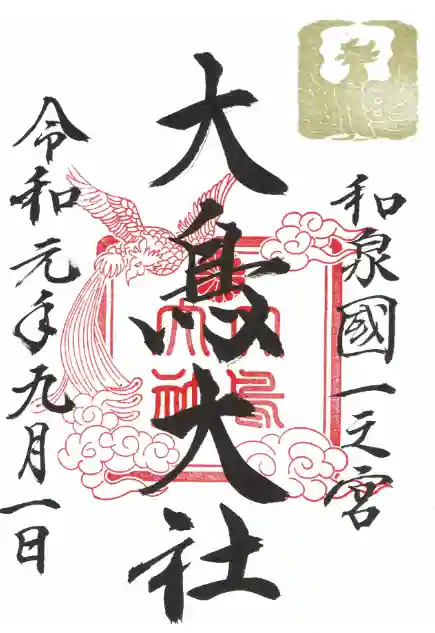 和泉國一之宮
大鳥大社
令和元年九月一日